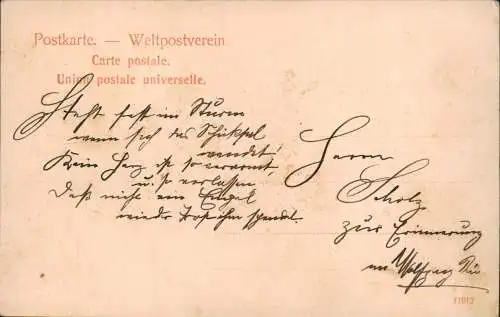 Postkarte. — Weltpostverein
Carte postale.
Union postale universelle.
Steht fest im Sturm
wenn sich das Schiksal
wendet!
Kein Herz ist so verarmt,
u. so verlassen
Daß nicht ein Engel
wieder Trost ihm spendet.
Herrn
Scholz
zur Erinnerung
an Wolfgang
11012